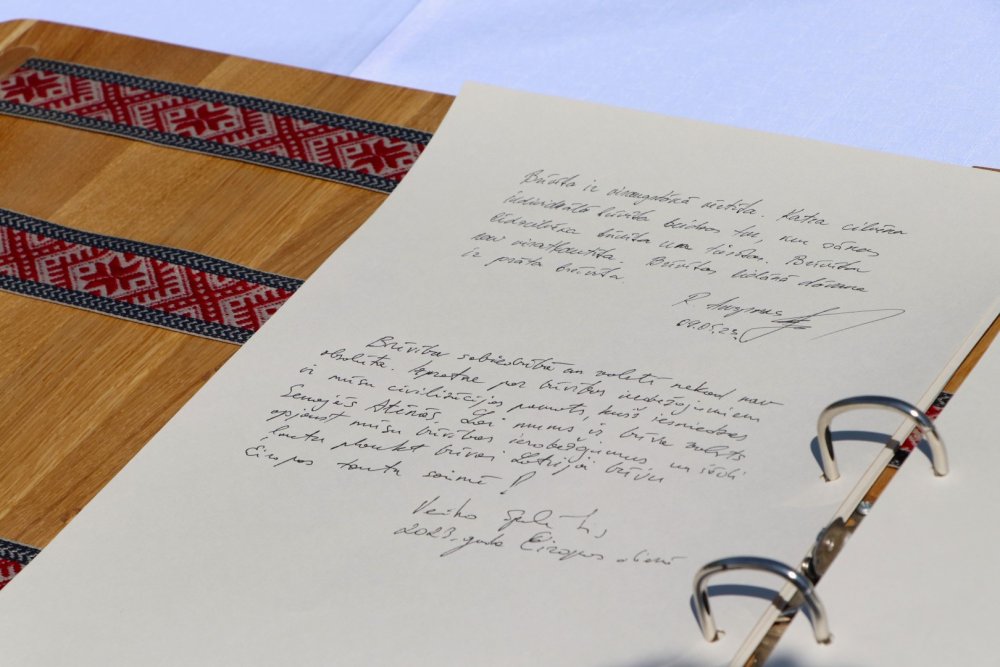 Brīvība ir visaugstākā vērtība. Katra cilvēka
individuālā brīvība beidzas tur, kur sākas
līdzcilvēka brīvība un tiesības. Brīvība
nav visatļautība. Brīvības lielākā dāvana
ir prāta brīvība.
R.
09.05.23.
Brīvība sabiedrībā un valstī nekad nav
absolūta. Izpratne par brīvības ierobežojumiem
ir mūsu civilizācijas pamats, kas iesniedzas
Senajās Atēnās. Lai mums ir brīva valsts
apjaust mūsu brīvības ierobežojumus un šādi
ļautu plaukt brīvai Latvijai brīvu
Eiropas tautu saimē!
Veiko
2023. gada Eiropas dienā